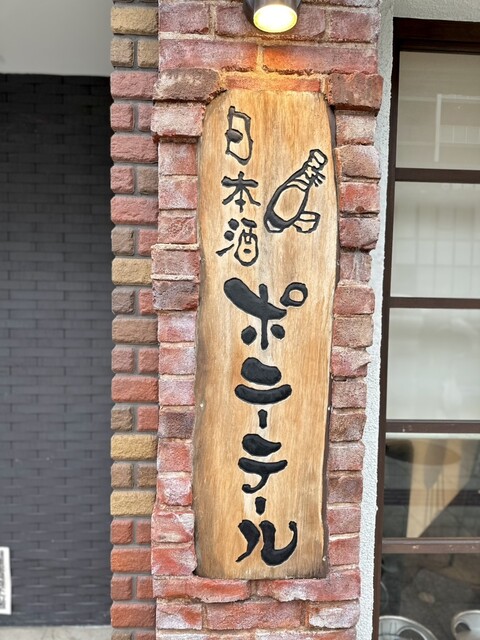 日本酒
ポニーテール